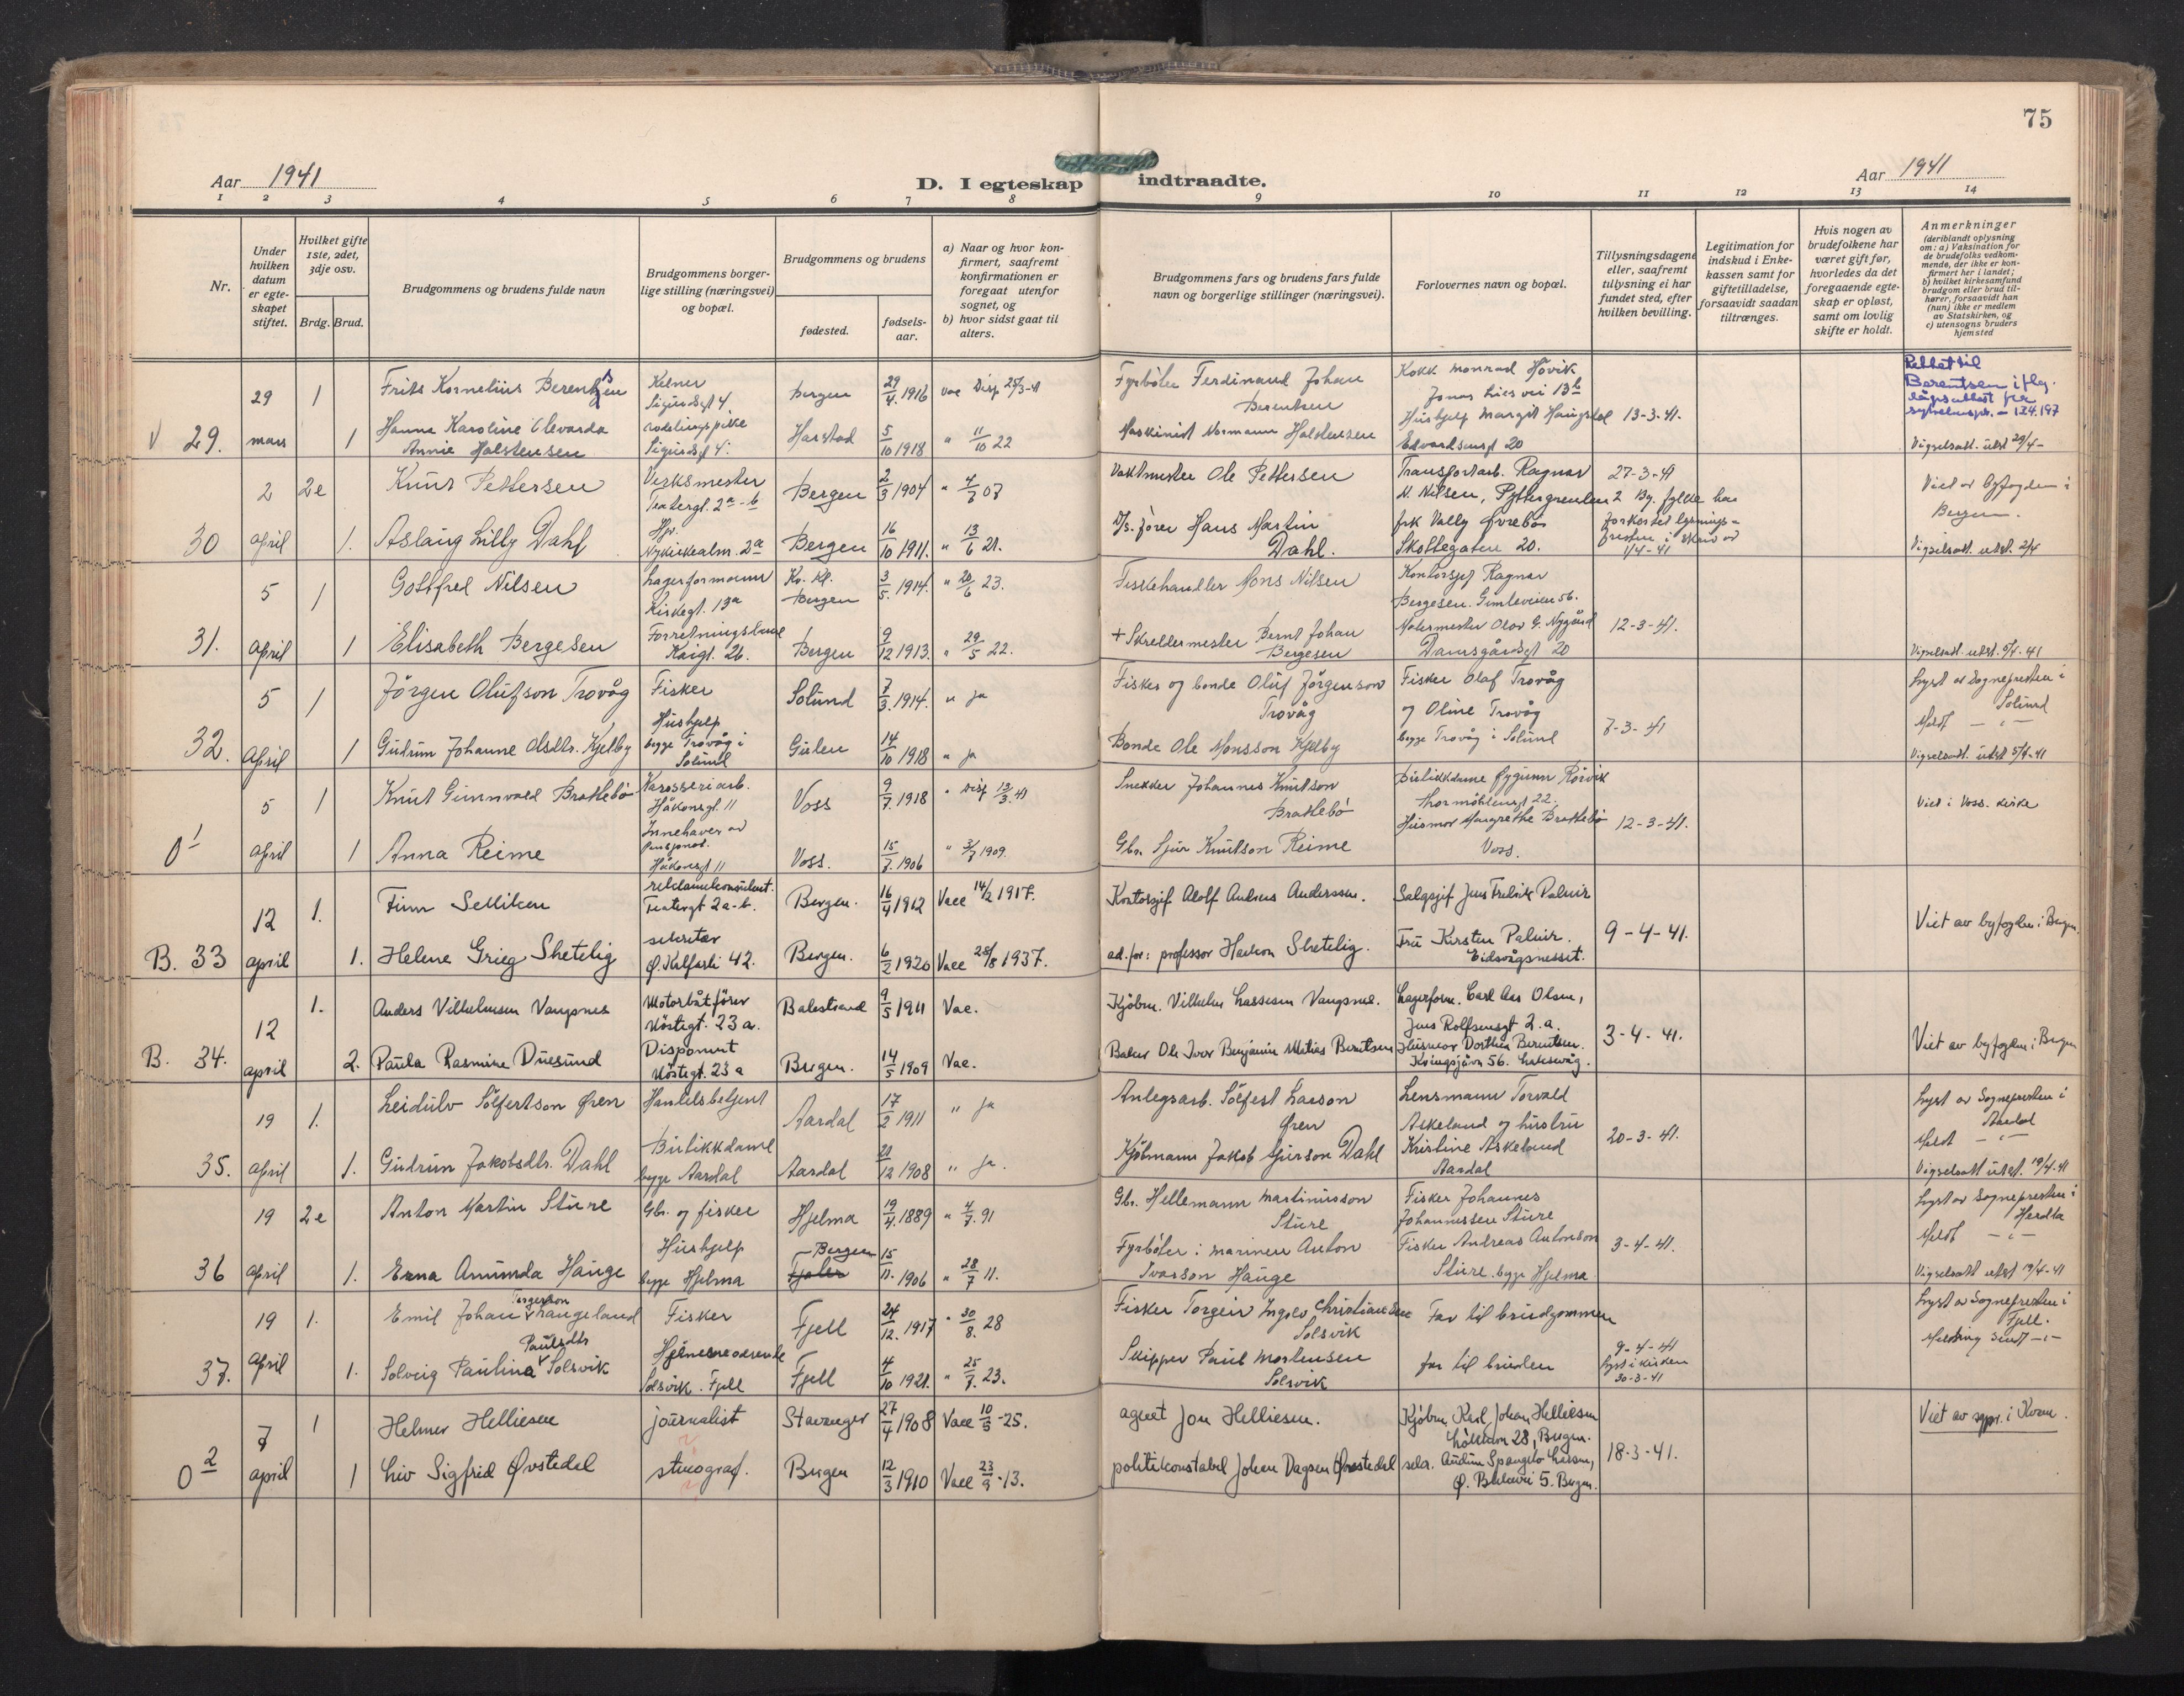 75
Aar 1941
D. I egteskap indtraadte.
Aar 1941
1 2 3 4 5 6 7 8 9 10 11 12 13 14
Nr.
Under hvilken datum er egteskapet stiftet.
Hvilket gifte 1ste, 2det, 3dje osv.
Brdg. Brud.
Brudgommens og brudens fulde navn
Brudgommens borgerlige stilling (næringsvei) og bopæl.
Brudgommens og brudens
fødested.
fødselsaar.
a) Naar og hvor konfirmert, saafremt konfirmationen er foregaat utenfor sognet, og
b) hvor sidst gaat til alters.
Brudgommens fars og brudens fars fulde navn og borgerlige stillinger (næringsvei).
Forlovernes navn og bopæl.
Tillysningsdagene eller, saafremt tillysning ei har fundet sted, efter hvilken bevilling.
Legitimation for indskud i Enkekassen samt for giftetilladelse, forsaavidt saadan tiltrænges.
Hvis nogen av brudefolkene har været gift før, hvorledes da det foregaaende egteskap er opløst, samt om lovlig skifte er holdt.
Anmerkninger (deriblandt oplysning om: a) Vaksination for de brudefolks vedkommende, der ikke er konfirmert her i landet; b) hvilket kirkesamfund brudgom eller brud tilhører, forsaavidt han (hun) ikke er medlem av Statskirken, og c) utensogns bruders hjemsted
29 1 Frits Kornelius Berentsen Kelner Sigurdsgt 4 Bergen 29/4 1916 vac Disp 25/3-41 Fyrbøter Ferdinand Johan Berentsen Kokk Monrad Høvik Jonas Lies vei 13b Rettet til Berentsen
V 29. mars 1 Hanna Karoline Alvarda Annie Halstensen Sigurdsgt 4. Harstad 5/10 1918 " 11/10 22 Maskinist Normann Halstensen Hushjelp Margit Haugsdal Edvardsensgt 20 13-3-41. Vigselsatt. utst 29/4-
2 2e Knut Pettersen Verksmester Teatergt. 2a-b Bergen 2/3 1904 " 4/7 07 Vaktmester Ole Pettersen Transportarb. Ragnar N. Nilsen, Pyttergrenden 2 27-3-41 By. fylke har Viet av byfogden i Bergen.
30 april 1. Aslaug Lilly Dahl Hjv. Nykirkealm. 2a Bergen 16/10 1911. " 13/6 21. D/s. fører Hans Martin Dahl. frk Vally Øvrebø Skottegaten 20. forkortet lysningsfristen i skriv av 1/4-41 Vigselsatt. utst. 2/4
5 1 Gottfred Nilsen Lagerformann Kirkegt. 13a Kr. kp. Bergen 3/5. 1914. " 20/6 23. Fiskehandler Mons Nilsen Kontorsjef Ragnar Bergesen. Gimleveien 56.
31. April 1 Elisabeth Bergesen Kaigt. 26. Bergen 9/12 1913. " 29/5 22. + Skreddermester Bernt Johan Bergesen Malermester Olav G. Nygård Damsgårdsgt 20 12-3-41. Vigselsatt. utst. 5/4-41
5 1 Jörgen Olufson Trovåg Fisker Solund 7/3. 1914. " ja Fisker og bonde Oluf Jörgenson Trovåg Fisker Olaf Trovåg Lyst av Sognepresten i Solund
32. April 1 Gudrun Johanne Olsdtr. Kjelby Hushjelp begge Trovåg i Solund Gulen 14/10 1918 " ja Bonde Ole Monsson Kjelby og Oline Trovåg begge Trovåg i Solund 7-3-41 Meldt - " - Vigselsatt. utst 5/4-41
5 1 Knut Gunnvald Brattebø Karosseriarb. Håkonsgt. 11 Voss 9/7. 1918 " Disp 13/3.41 Snekker Johannes Knutson Brattebø Butikkdame Gygunn Rörvik Thormöhlensgt 22. Viet i Voss kirke
0 1 April 1 Anna Reime Innehaver av pensjonat. Håkonsgt 11 Voss. 15/7. 1906 " 3/7 1909. Gbr. Sjur Knutson Reime Husmor Margrethe Brattebø Voss. 12-3-41.
12 1. Finn Selliken reklamekonsulent. Teatergt 2a-b. Bergen. 16/4 1912 Vacc 14/2 1917. Kontorsjef Alolf Andreas Anderssen. Salgsjef Jens Fredrik Paluir
B. 33 april 1. Helene Grieg Shetelig sekretær Ø. Kalfarli 42. Bergen. 6/2 1920 Vacc 28/8 1937. ad. for: professor Haakon Shetelig. Fru Kirsten Paluir. Eidsvågnesset. 9-4-41. Viet av byfogden i Bergen.
12 1. Anders Vilhelmsen Vangsnes Motorbåtfører Köstegt. 23 a. Balestrand 9/5 1911 Vac. Kjöbm. Vilhelm Lassesen Vangsnes. Lagerform. Carl Aas Olsen, Jens Rolfsensgt 2.a.
B. 34. april 2. Paula Rasmine Duesund Disponent Köstegt. 23 a Bergen. 14/5 1909 Vac. Baker Ole Iver Benjamin Matias Berntsen Husmor Dorthea Berentsen. Kringsjåvn 56. Laksevåg. 3-4-41. Viet av byfogden i Bergen
19 1. Leidulv Sölfertson Øren Handelsbetjent Aardal 17/2 1911 " ja Anlegsarb. Sölfest Larson Øren Lensmann Torvald Askeland og hustru Lyst av Sognepresten i Aardal
35. April 1. Gudrun Jakobsdtr. Dahl Butikkdame begge Aardal Aardal 21/12 1908 " ja. Kjöbmann Jakob Sjurson Dahl Kristine Askeland Aardal 20-3-41. Meldt - " - Vigselsatt utst. 19/4-41
19 2e Anton Martin Sture Gbr. og fisker Hjelma 19/4. 1889 " 4/7. 91 Gbr. Hellemann Martinusson Sture Fisker Johannes Johannessen Sture Lyst av Sognepresten i Herdla
36 April 1. Erna Amunda Hauge Hushjelp begge Hjelma Bergen Fjaler 15/11. 1906 " 28/7 11. Fyrbøter i marinen Anton Ivarson Hauge Fisker Andreas Antonson Sture. begge Hjelma 3-4-41. Meldt - " - Vigselsatt utst 19/4-41
19 1. Emil Johan Torgerson Frangeland Fisker Fjell 24/12. 1917 " 30/8. 28 Fisker Torgeir Ingolv Christiansen Solsvik Far til brudgommen Lyst av Sognepresten i Fjell.
37. April 1. Solveig Paulina Paulsdtr Solsvik Hjemmeværende Solsvik. Fjell Fjell 4/10 1921. " 25/7. 23. Skipper Paul Mortensen Solsvik far til bruden 9-4-41 lyst i kirken 30-3-41 Melding sendt - " -
7 1 Helmer Helliesen journalist Stavanger 27/4 1908 Vacc 10/5-25. agent Jon Helliesen. Kjöbm. Karl Johan Helliesen 28, Bergen. Viet av sgpr. i Kvam.
0 2 april 1 Liv Sigfrid Øvstedal stenograf. Bergen 12/3 1910 Vacc 23/9-13. politikonstabel Johan Dagsen Øvstedal sekr. Audun Spangelo Larsen, Ø. Blekevei 5. Bergen. 18-3-41.